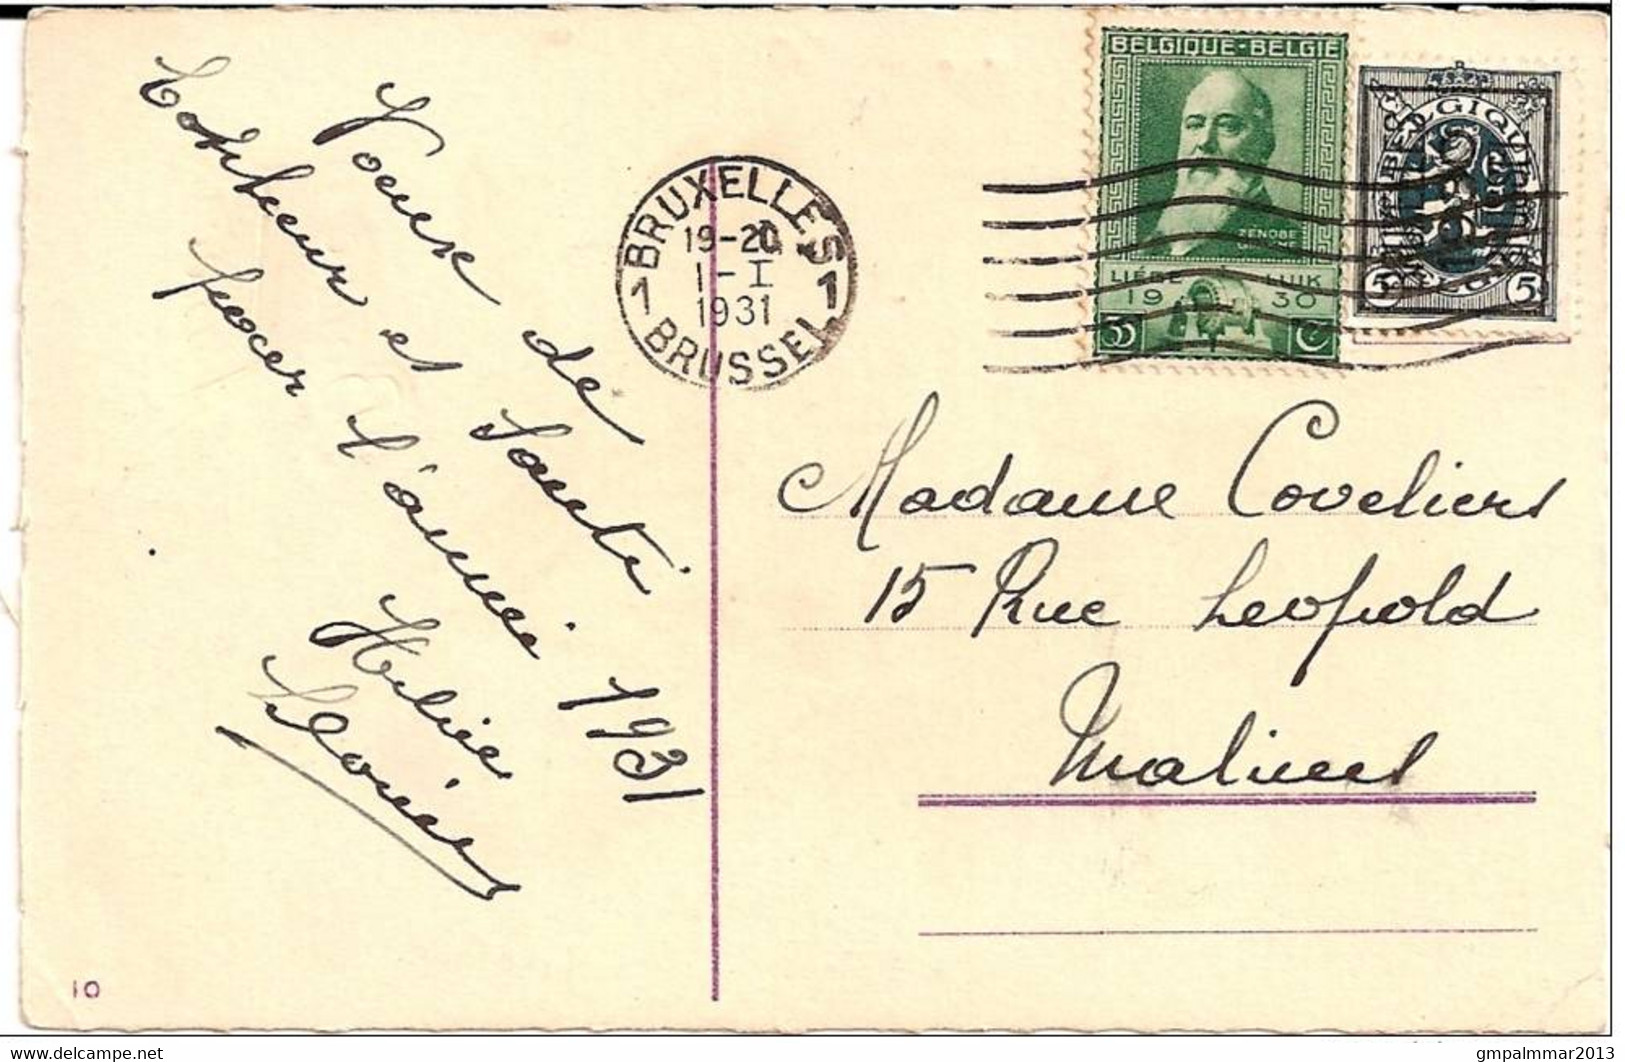 Voeux de
bonheur et santé
pour l'année 1931
BRUXELLES 1
19-20
1-I
1931
1 BRUSSEL
BELGIQUE-BELGIE
ZENOBE
GRAMME
LIÉGE LUIK
19 30
35 C
BELGIQUE
5 5
BELGIE
Madame Coveliers
15 Rue Leopold
Malines
10
gmpalmmar2013